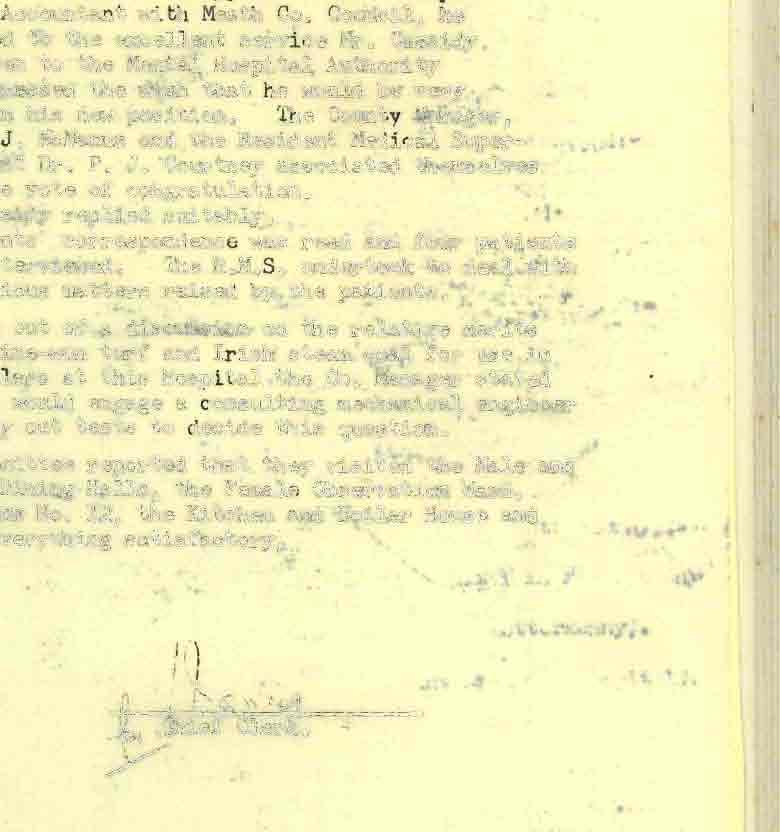 Accountant with Meath Co. Council, he
d to the excellent service Mr. Cassidy
en to the Mental Hospital Authority
pressed the wish that he would be very
n his new position. The County Manager,
J. McManus and the Resident Medical Super-
Dr. P. J. Courtney associated themselves
e vote of congratulation.
replied suitably.
nts' correspondence was read and four patients
terviewed. The R.M.S. undertook to deal with
ious matters raised by the patients.
out of a discussion on the relative merits
turf and Irish steam coal for use in
lers at this Hospital the Co. Manager stated
would engage a consulting mechanical engineer
y out tests to decide this question.
mittee reported that they visited the Male and
Dining Halls, the Female Observation Ward,
No. 12, the Kitchen and Boiler House and
verything satisfactory.
Chief Clerk.